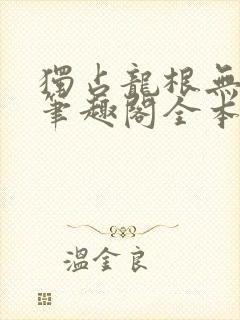 獨占龍根無
筆趣閣全本
溫金良